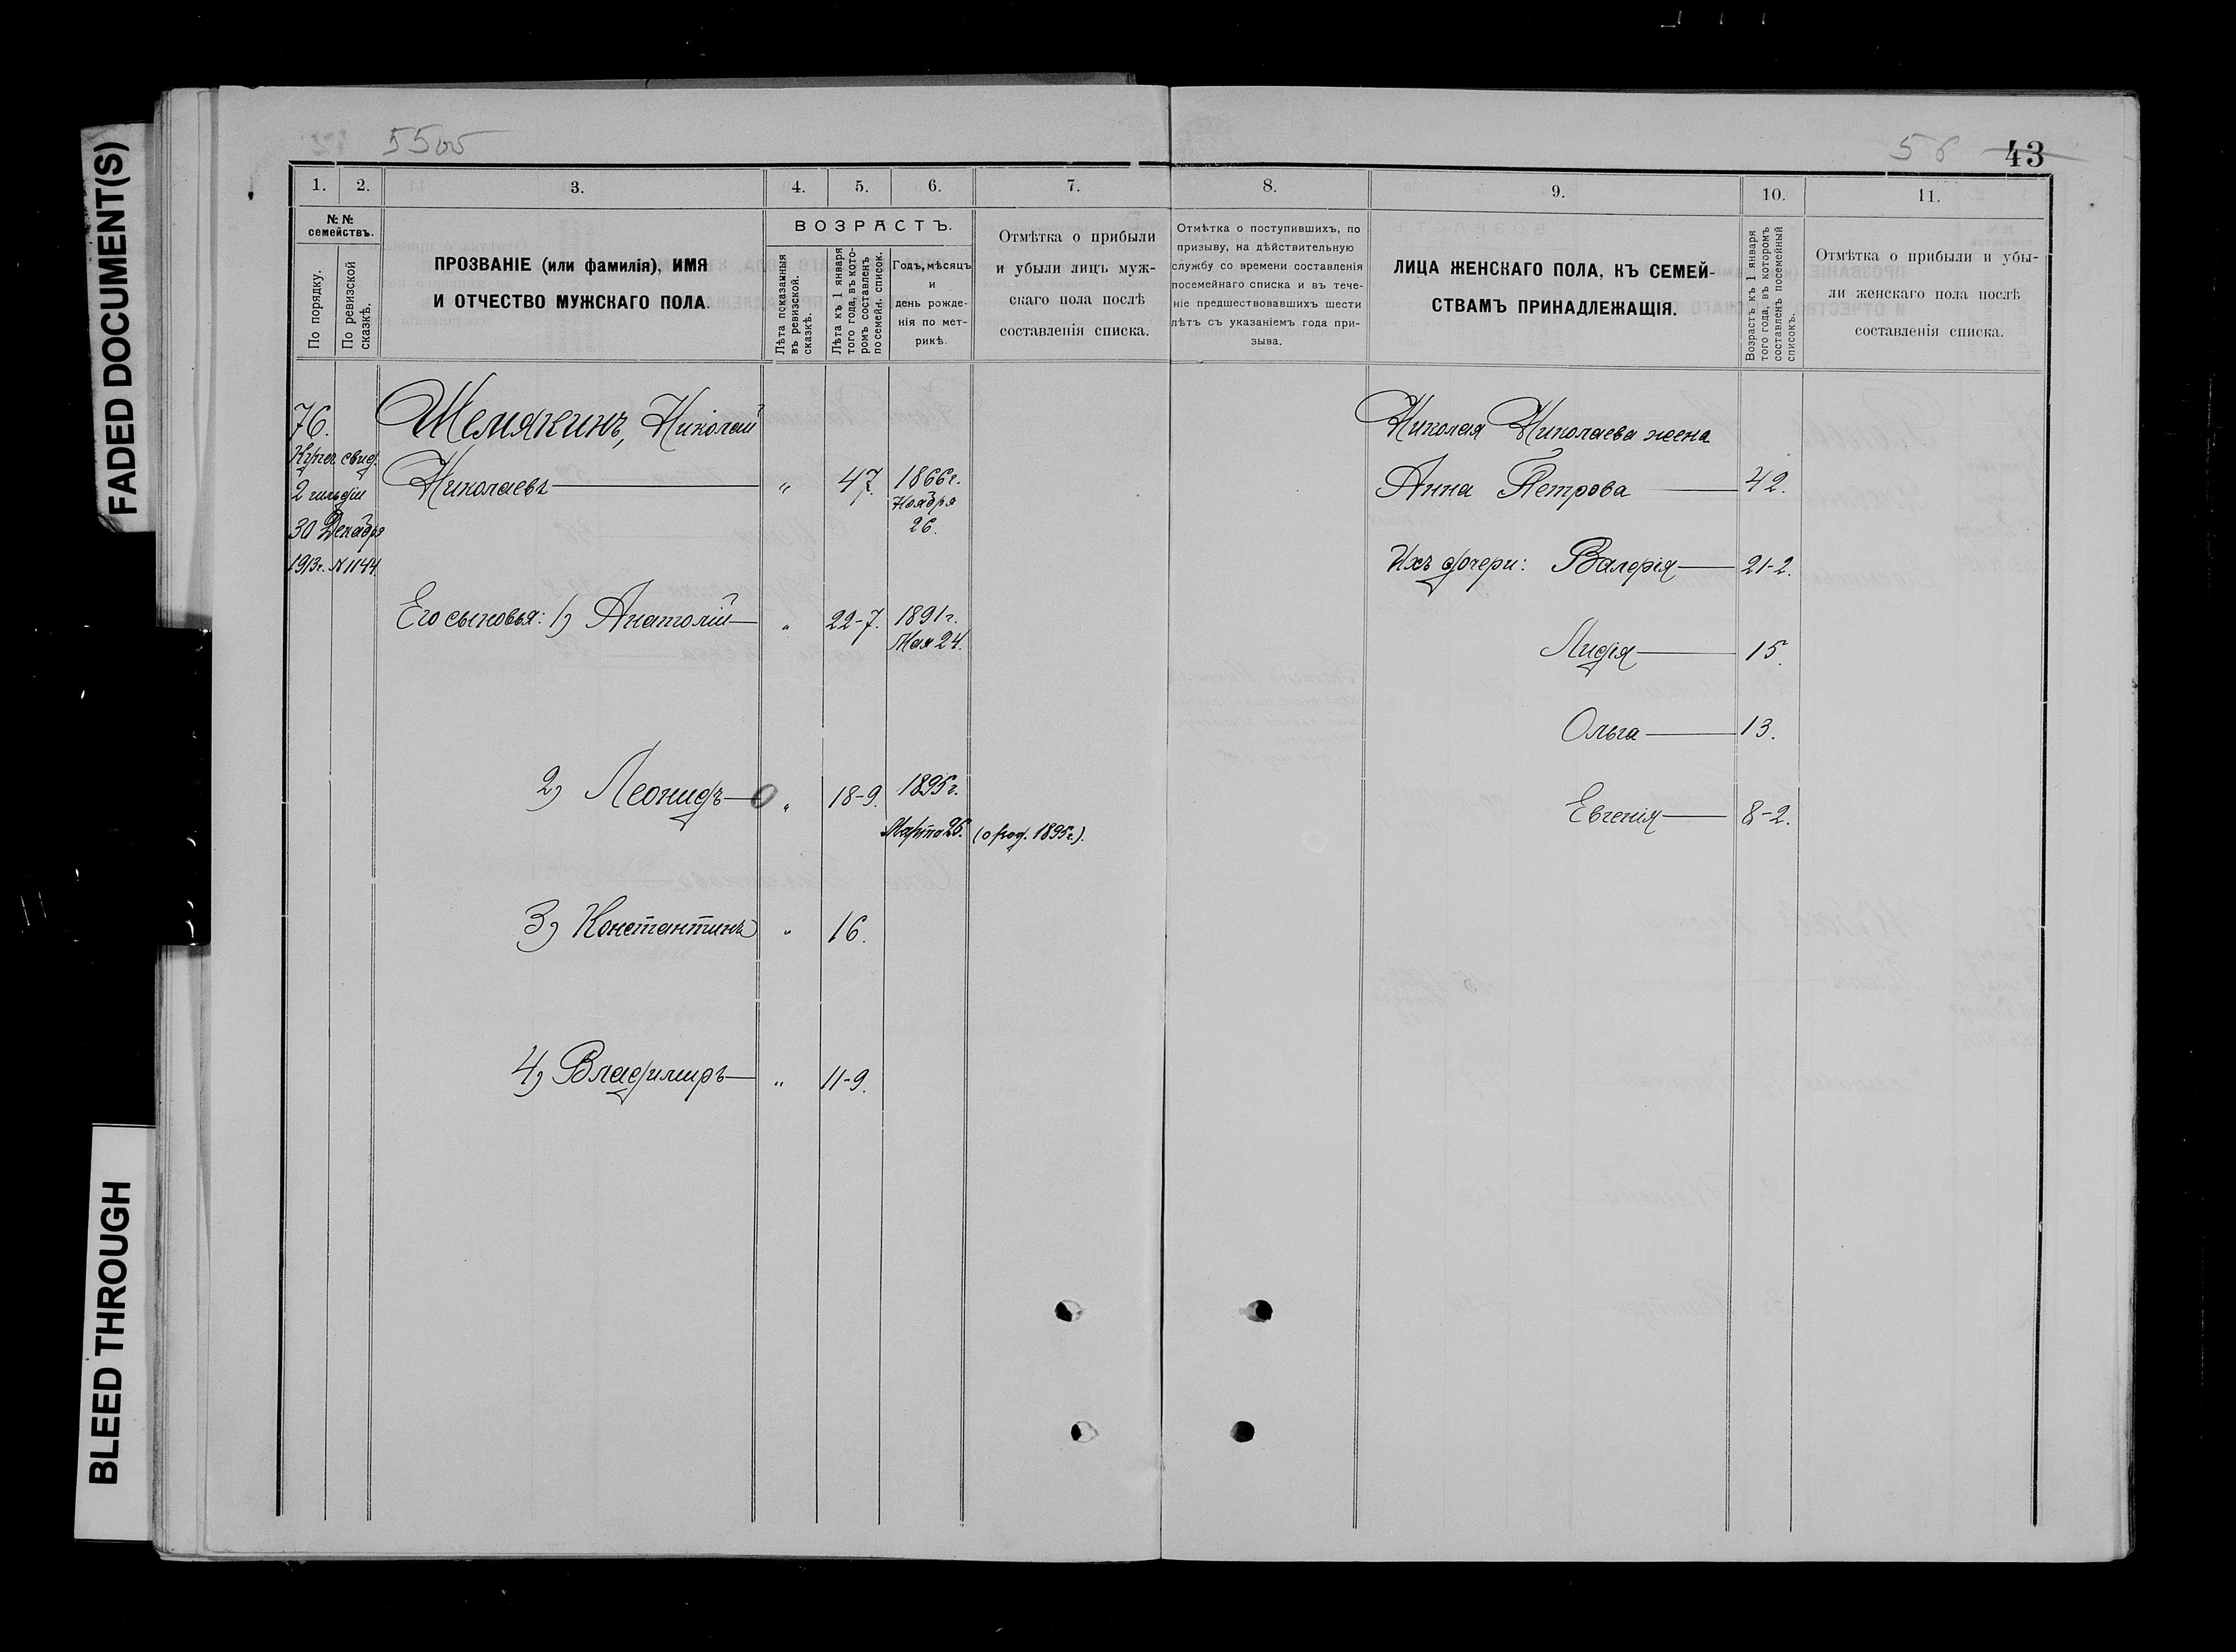 FADED DOCUMENT(S)
BLEED THROUGH
43
1. 2. 3. 4. 5. 6. 7. 8. 9. 10. 11.
№ №
семействъ.
По порядку.
По ревизской
сказкѣ.
ПРОЗВАНІЕ (или фамилія), ИМЯ
И ОТЧЕСТВО МУЖСКАГО ПОЛА.
ВОЗРАСТЪ.
Лѣта показанныя
въ ревизской.
сказкѣ.
Лѣта къ 1 января
того года, въ кото-
ромъ составленъ
посемейн. список.
Годъ, мѣсяцъ
и
день рожде-
нія по мет-
рикѣ.
Отмѣтка о прибыли
и убыли лицъ муж-
скаго пола послѣ
составленія списка.
Отмѣтка о поступившихъ, по
призыву, на дѣйствительную
службу со времени составленія
посемейнаго списка и въ тече-
ніе предшествовавшихъ шести
лѣтъ съ указаніемъ года при-
зыва.
ЛИЦА ЖЕНСКАГО ПОЛА, КЪ СЕМЕЙ-
СТВАМЪ ПРИНАДЛЕЖАЩІЯ.
Возрастъ къ 1 января
того года, въ которомъ
составленъ посемейный
списокъ.
Отмѣтка о прибыли и убы-
ли женскаго пола послѣ
составленія списка.
76.
Купеч свид.
2 гильдіи
30 Декабря
1913г. № 1144
Шемякинъ, Николай
Николаевъ „ 47. 1866г.
Ноября
26.
Его сыновья: 1) Анатолій „ 22-7. 1891г.
Мая 24.
2) Леонидъ „ 18-9. 1895г.
Марта 26. (о род. 1895г.).
3) Константинъ „ 16.
4) Владимиръ „ 11-9.
Николая Николаева жена
Анна Петрова 42.
Ихъ дочери: Валерія 21-2.
Лидія 15.
Ольга 13.
Евгенія 8-2.